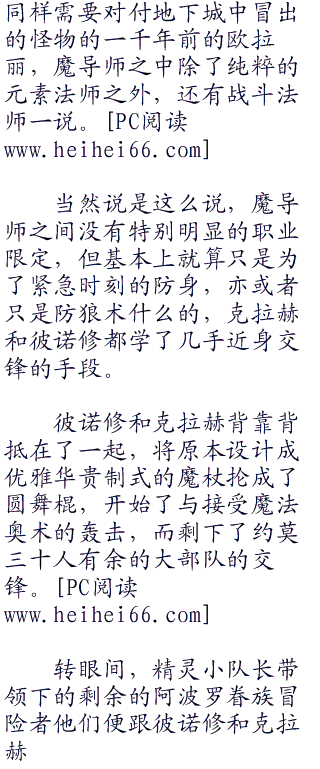 同样需要对付地下城中冒出
的怪物的一千年前的欧拉
丽，魔导师之中除了纯粹的
元素法师之外，还有战斗法
师一说。[PC阅读
www.heihei66.com]
当然说是这么说，魔导
师之间没有特别明显的职业
限定，但基本上就算只是为
了紧急时刻的防身，亦或者
只是防狼术什么的，克拉赫
和彼诺修都学了几手近身交
锋的手段。
彼诺修和克拉赫背靠背
抵在了一起，将原本设计成
优雅华贵制式的魔杖抡成了
圆舞棍，开始了与接受魔法
奥术的轰击，而剩下了约莫
三十人有余的大部队的交
锋。[PC阅读
www.heihei66.com]
转眼间，精灵小队长带
领下的剩余的阿波罗眷族冒
险者他们便跟彼诺修和克拉
赫